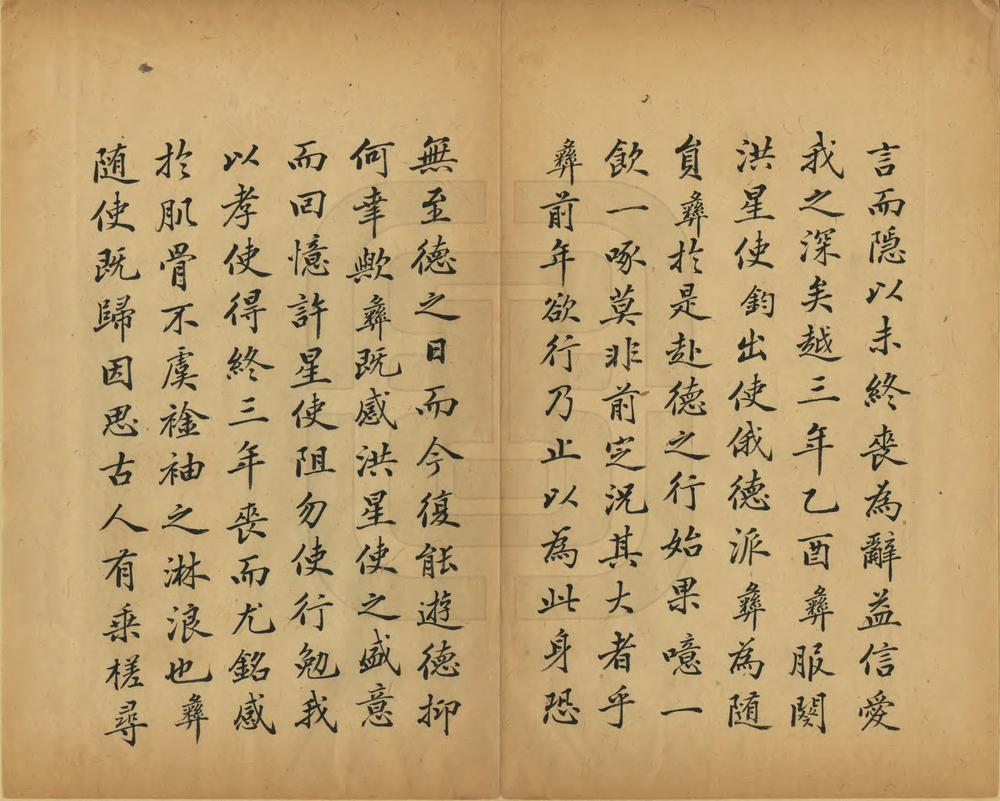 言而隱以未終喪為辭益信愛
我之深矣越三年乙酉彝服闋
洪星使鈞出使俄德派彝為随
員彝於是赴德之行始果噫一
飲一啄莫非前定況其大者乎
彝前年欲行乃止以為此身恐
無至德之日而今復能遊德抑
何幸歟彝既感洪星使之盛意
而回憶許星使阻勿使行勉我
以孝使得終三年喪而尤銘感
於肌骨不虞襘袖之淋浪也彝
随使既歸因思古人有乗槎尋